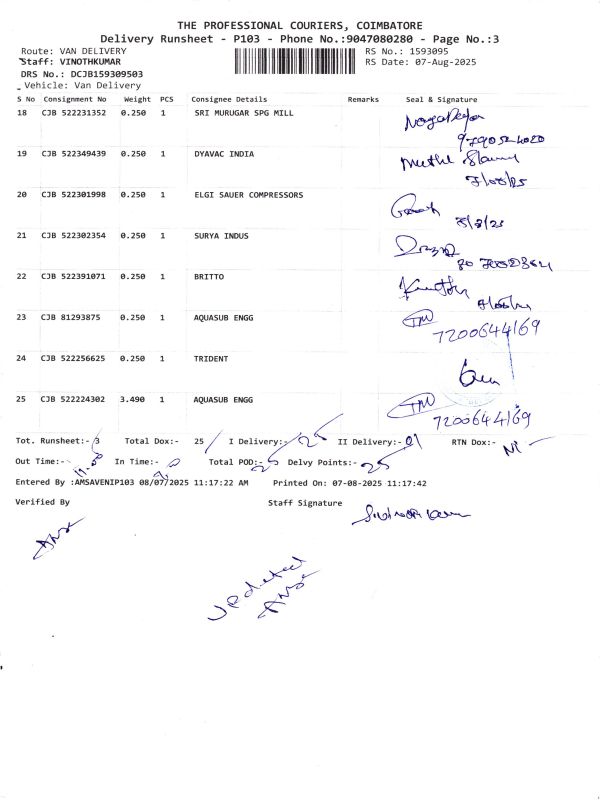 THE PROFESSIONAL COURIERS, COIMBATORE
Delivery Runsheet - P103 - Phone No.:9047080280 - Page No.:3
Route: VAN DELIVERY RS No.: 1593095
Staff: VINOTHKUMAR RS Date: 07-Aug-2025
DRS No.: DCJB159309503
Vehicle: Van Delivery
S No Consignment No Weight PCS Consignee Details Remarks Seal & Signature
18 CJB 522231352 0.250 1 SRI MURUGAR SPG MILL
19 CJB 522349439 0.250 1 DYAVAC INDIA
20 CJB 522301998 0.250 1 ELGI SAUER COMPRESSORS
21 CJB 522302354 0.250 1 SURYA INDUS
22 CJB 522391071 0.250 1 BRITTO
23 CJB 81293875 0.250 1 AQUASUB ENGG
7200644169
24 CJB 522256625 0.250 1 TRIDENT
25 CJB 522224302 3.490 1 AQUASUB ENGG
7200644169
Tot. Runsheet:- 3 Total Dox:- 25 I Delivery:- 25 II Delivery:- 01 RTN Dox:- Nil
Out Time:- 11.00 In Time:- Total POD:- 25 Delvy Points:- 25
Entered By :AMSAVENIP103 08/07/2025 11:17:22 AM Printed On: 07-08-2025 11:17:42
Verified By Staff Signature
Updated